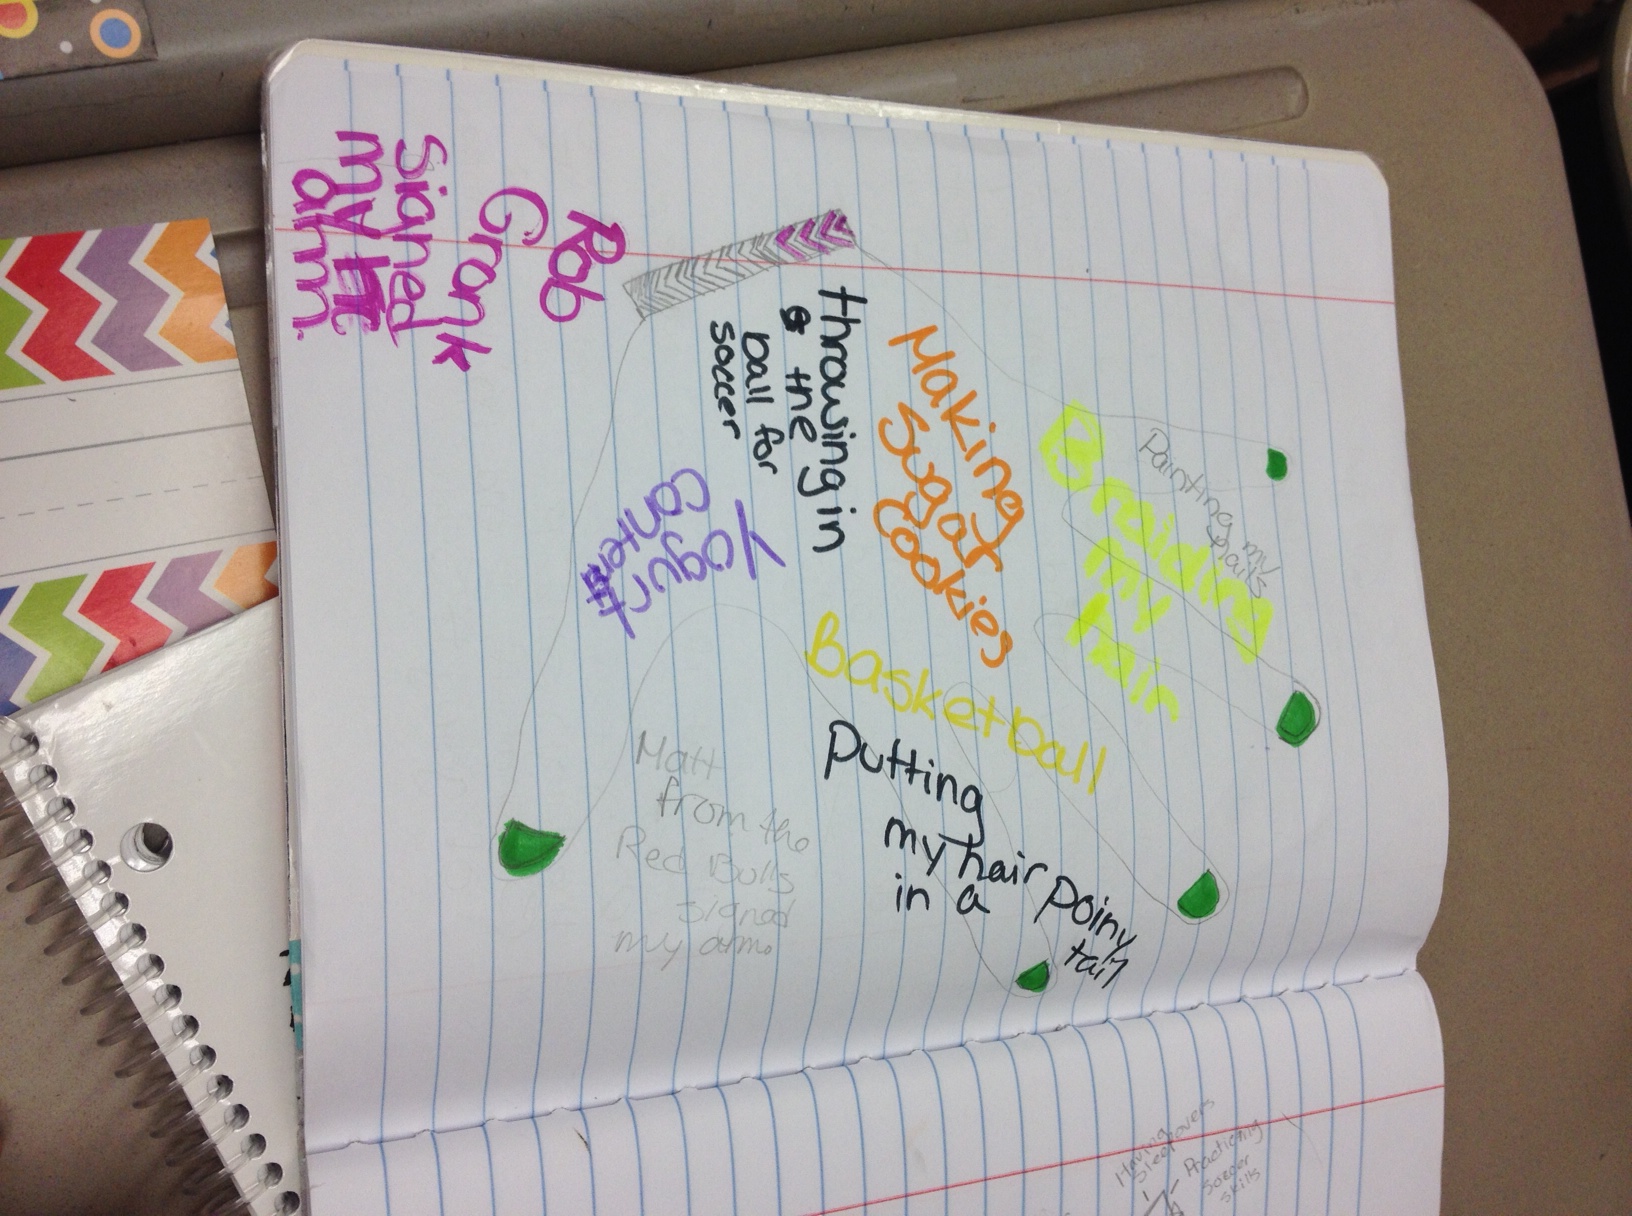 Rob
Gronk
signed
my
arm.
throwing in
the
ball for
soccer
Making
Sugar
Cookies
Painting my
nails
Braiding
my
hair
Yogurt
contenst
Basketball
Putting
my hair
in a
poiny
tail
Matt
from the
Red Bulls
signed
my arm.
Having
Sleepovers
Practicing
Soccer
skills